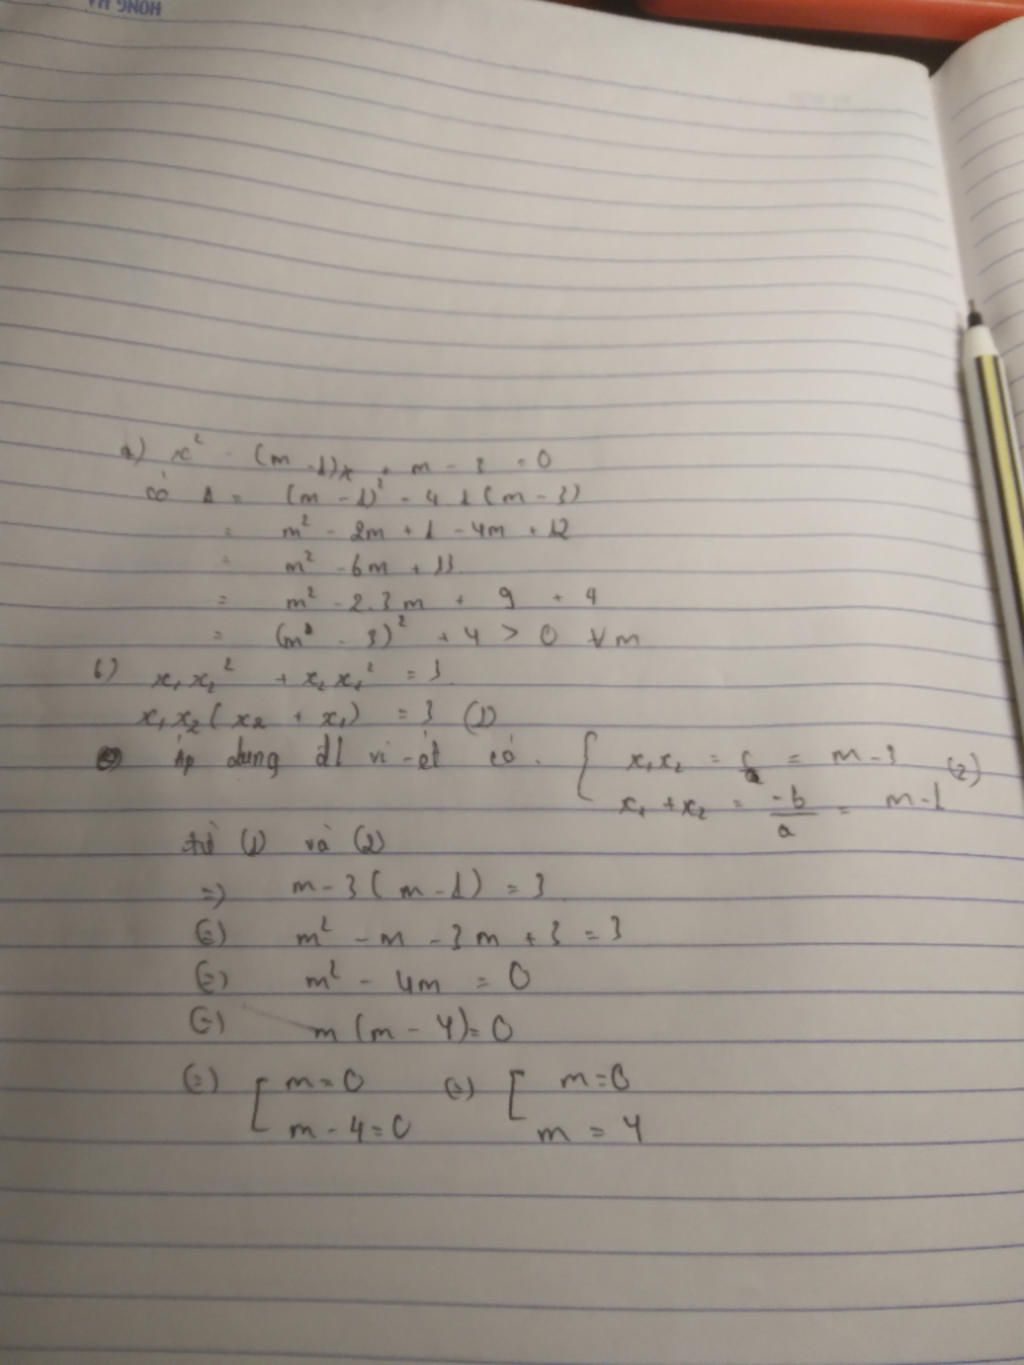 HONG HA
a) x² - (m - 1)x + m - 3 = 0
có Δ = (m - 1)² - 4.1(m - 3)
= m² - 2m + 1 - 4m + 12
= m² - 6m + 13
= m² - 2.3m + 9 + 4
= (m - 3)² + 4 > 0 ∀m
b) x₁x₂² + x₂x₁² = 3
x₁x₂(x₂ + x₁) = 3 (1)
Áp dụng đl vi-ét có. { x₁x₂ = c/a = m - 3 (2)
x₁ + x₂ = -b/a = m - 1
từ (1) và (2)
=> m - 3(m - 1) = 3
(=) m² - m - 3m + 3 = 3
(=) m² - 4m = 0
(=) m(m - 4) = 0
(=) [ m = 0 (=) [ m = 0
m - 4 = 0 m = 4